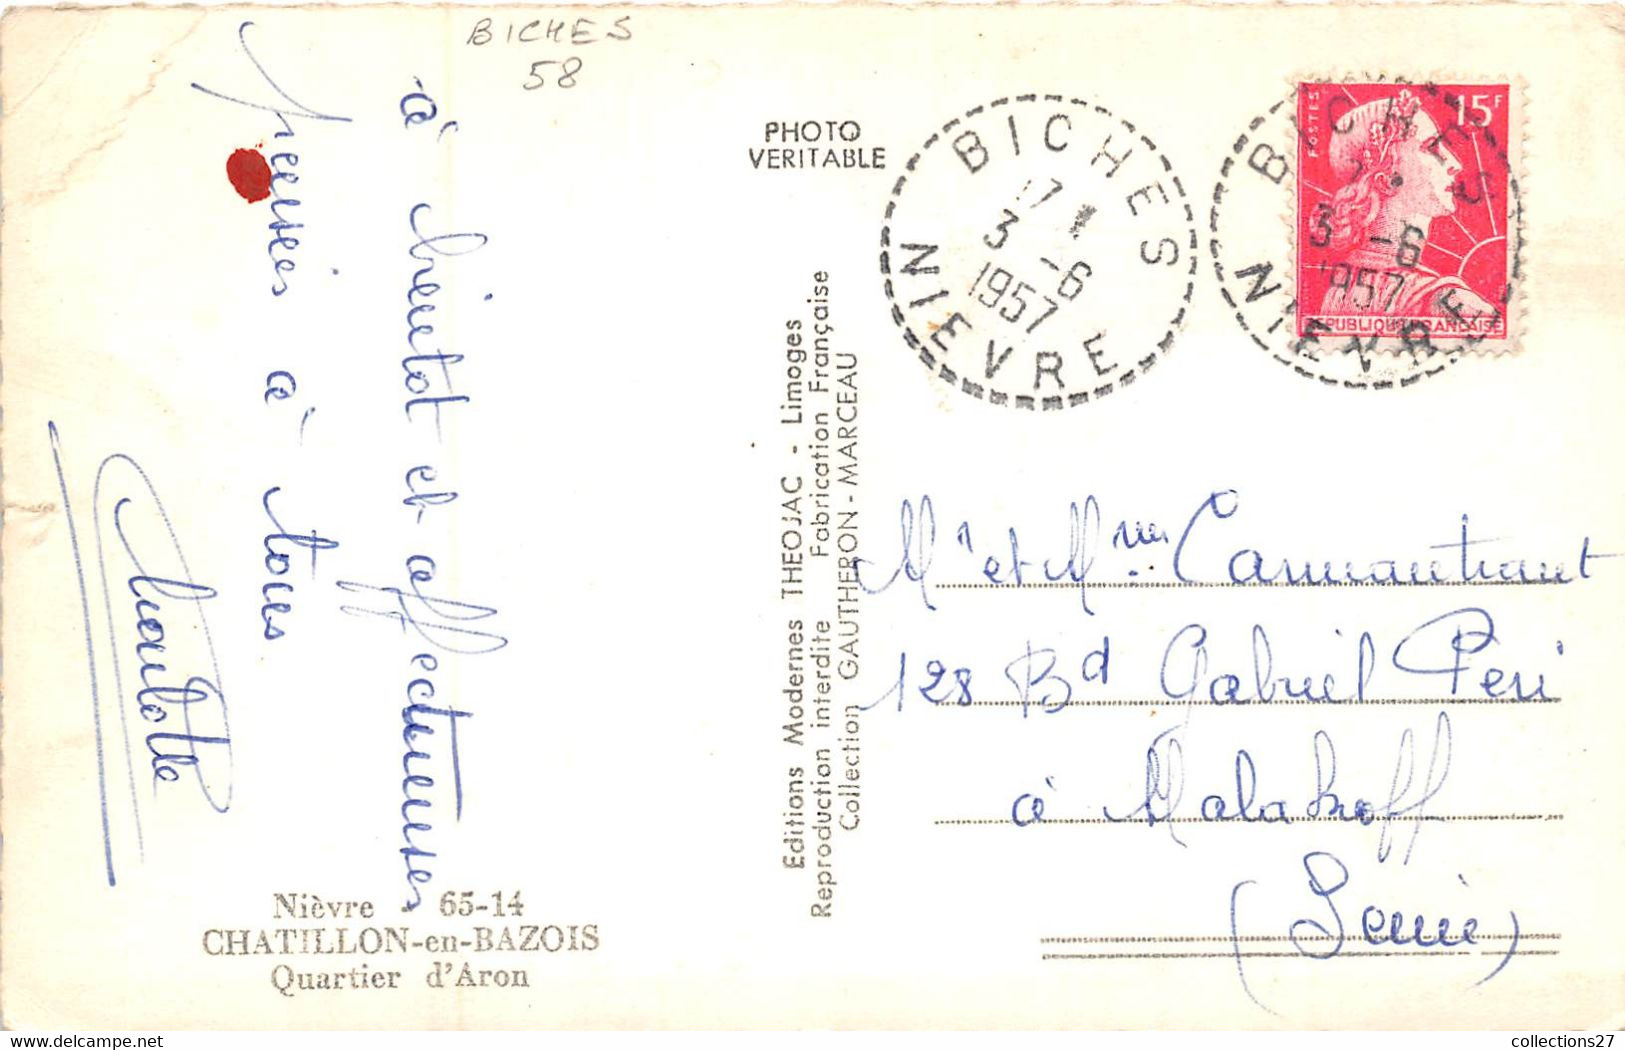 BICHES
58
à bientôt et affectueuses
pensées à tous
PHOTO
VERITABLE
BICHES
17
3 -6
1957
NIEVRE
BICHES
3 -6
1957
NIEVRE
POSTES
15F
REPUBLIQUE FRANCAISE
Editions Modernes THEOJAC - Limoges
Reproduction interdite Fabrication Française
Collection GAUTHERON - MARCEAU
Mr et Mme Carmantrant
128 Bd Gabriel Péri
à Malakoff
(Seine)
Nièvre - 65-14
CHATILLON-en-BAZOIS
Quartier d'Aron
collections27